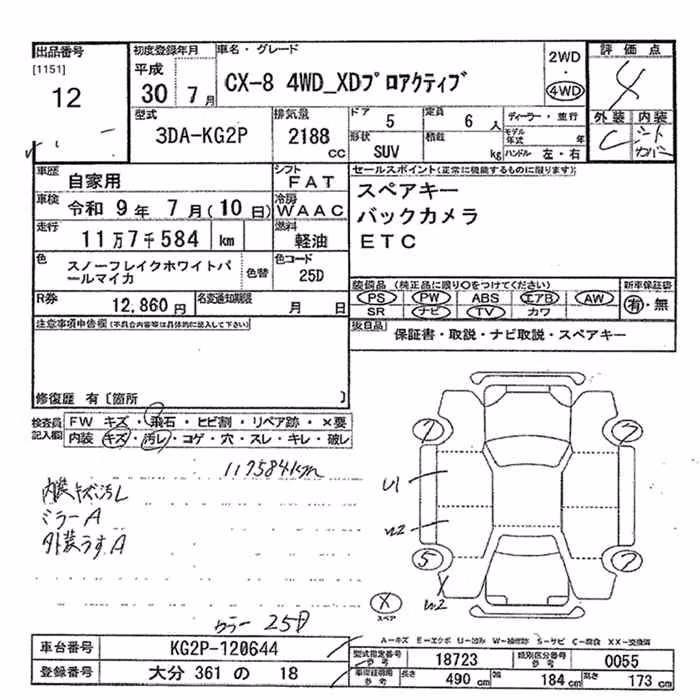 出品番号
[1151]
12
初度登録年月
平成
30 7 月
車名・グレード
CX-8 4WD_XDプロアクティブ
2WD
・
4WD
評価点
4
外装 内装
C
型式
3DA-KG2P
排気量
2188
cc
ドア 5
形状
SUV
定員 6 人
積載
kg
ディーラー・並行
モデル年式 年
ハンドル 左・右
車歴
自家用
シフト
FAT
車検
令和 9 年 7 月(10 日)
冷房
WAAC
走行
11万7千584 km
燃料
軽油
色
スノーフレイクホワイトパールマイカ
色替
色コード
25D
R券
12,860 円
名変通知期限
月 日
セールスポイント(正常に機能するものに限ります)
スペアキー
バックカメラ
ETC
装備品 (純正品に限り○をつけてください)
PS PW ABS エアB AW
SR ナビ TV カワ
新車保証書
有・無
後日品
保証書・取説・ナビ取説・スペアキー
注意事項申告欄(不具合内容等は具体的に記入して下さい)
修復歴 有〔箇所 〕
検査員記入欄
FW キズ・飛石・ヒビ割・リペア跡・×要
内装 キズ・汚レ・コゲ・穴・スレ・キレ・破レ
117584km
内装キズ汚レ
ミラーA
外装うすA
カラー 25D
7
7
U1
W2
5
7
X
W2
X
スペア
A-キズ E-エクボ U-凹み W-補修跡 S-サビ C-腐食 XX-交換済
車台番号
KG2P-120644
登録番号
大分 361 の 18
型式指定番号
参考
18723
類別区分番号
参考
0055
参考
長さ
490 cm
幅
184 cm
高さ
173 cm